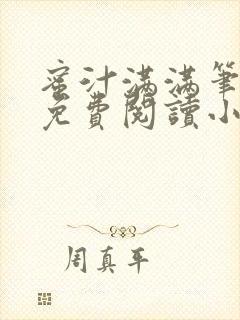 蜜汁满满笔
免費閱讀小
周真平